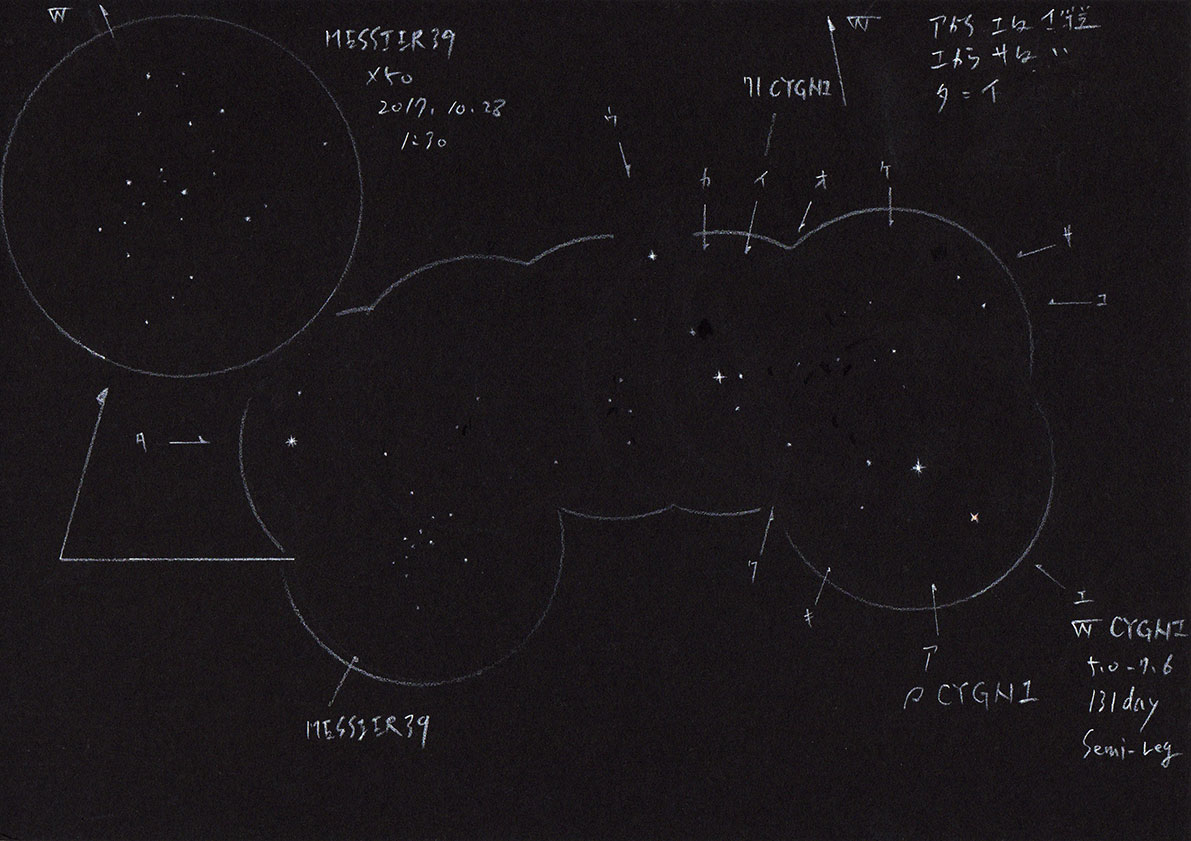 W
MESSIER 39
×50
2017. 10. 28
1:30
W
アから エは
エから サは 〃
タ = イ
71 CYGNI
ウ
カ
イ
オ
ケ
サ
コ
タ
ク
キ
ア
ρ CYGNI
エ
W CYGNI
5.0-7.6
131 day
Semi-reg
MESSIER 39